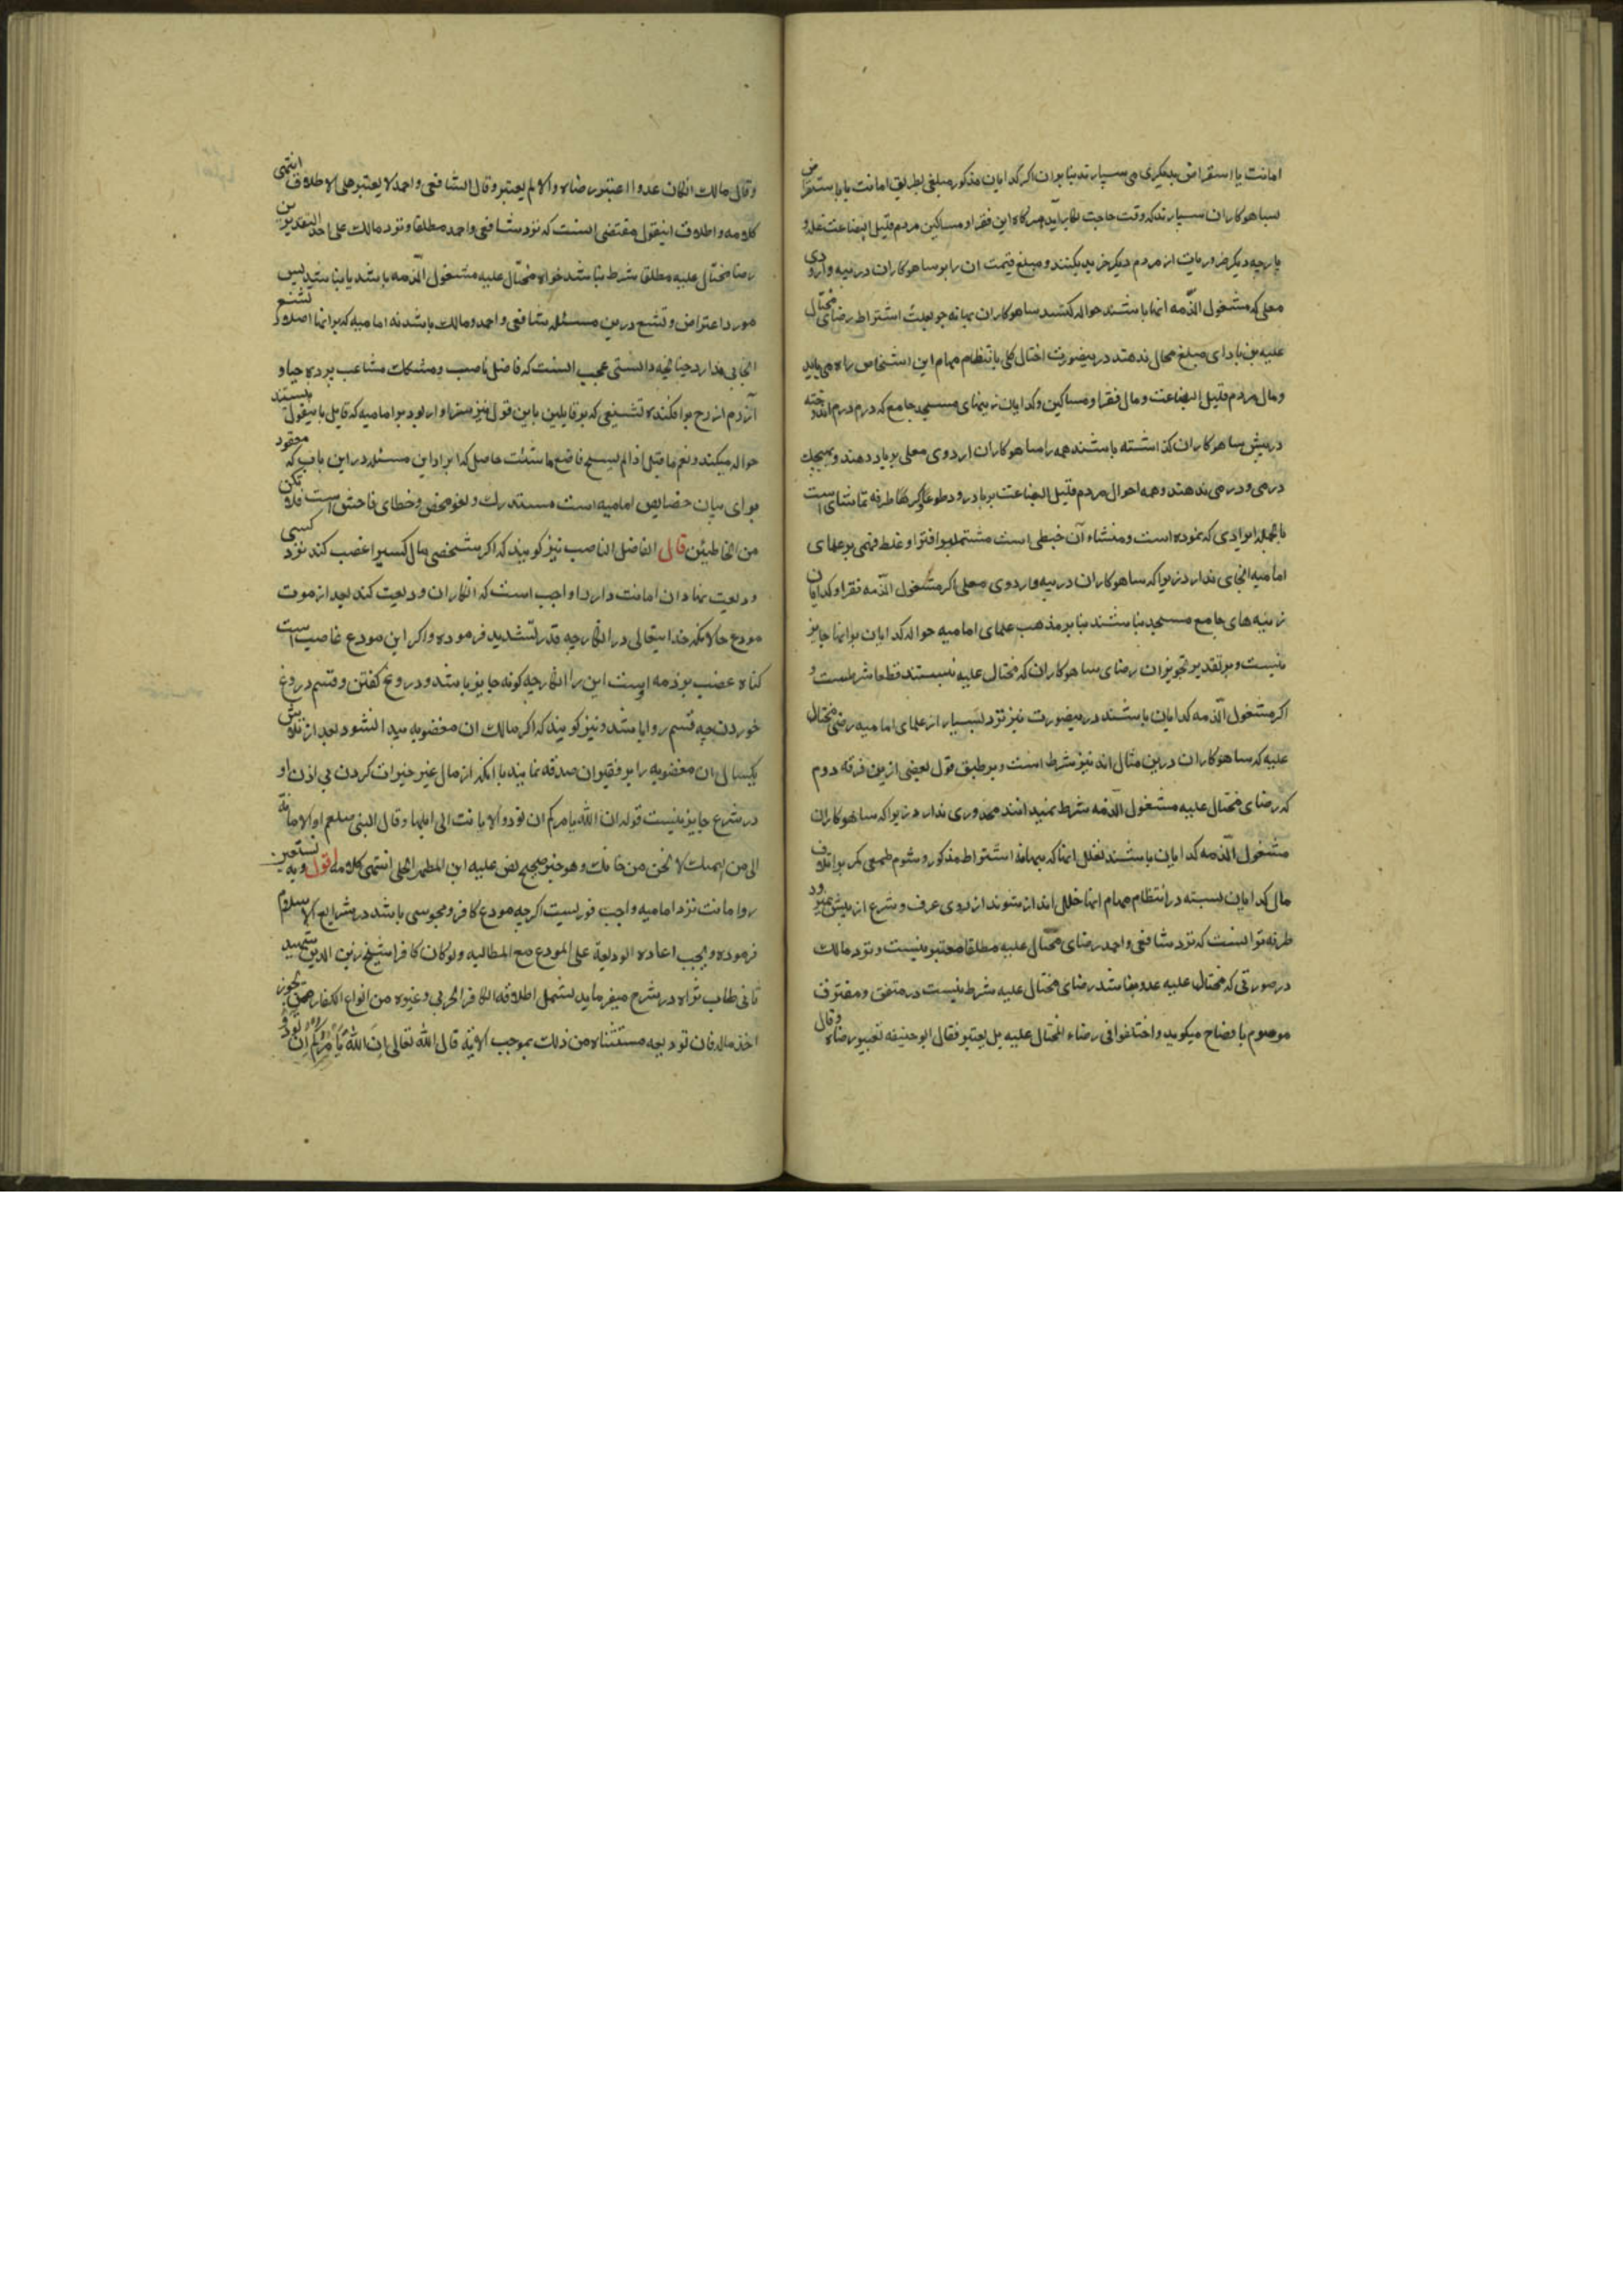 امانت یا استقراض بدیگری می سپارند بنابران اگر گدایان مذکور مبلغی بطریق امانت یا باستقراض
بساهوکاران سپارند که وقت حاجت بکار آید هرگاه این فقرا و مساکین مردم قلیل البضاعت غله و
پارچه دیگر ضروریات از مردم دیگر خرید بکنند و مبلغ قیمت ان را بر ساهوکاران دریبه واردوی
معلی که مشغول الذمه انها باشند حواله کنند ساهوکاران ببهانه جو بعلت اشتراط رضای محتال
علیه تن بادای مبلغ محال ندهند درینصورت اختلال کلی بانتظام مهام این اشخاص راه می یابد
و مال مردم قلیل البضاعت و مال فقرا و مساکین و گدایان زینهای مسجد جامع که درم درم اندوخته
در پیش ساهوکاران گذاشته باشند همه را ساهوکاران اردوی معلی برباد دهند و بهیچیک
درمی و درمی ندهند و همه احوال مردم قلیل البضاعت برباد رود طوعا و کرها طرفه تماشای است
بالجمله ایرادی که نموده است و منشاء آن خبطی است مشتمل بر افترا و غلط فهمی بر علمای
امامیه انجای ندارد زیرا که ساهوکاران دریبه و اردوی معلی اگر مشغول الذمه فقرا و گدایان
زینه های جامع مسجد نباشند بنابر مذهب علمای امامیه حواله گدایان برانها جایز
نیست و بر تقدیر تجویزان رضای ساهوکاران که محتال علیه نیستند قطعا شرطست و
اگر مشغول الذمه گدایان باشند درینصورت نیز نزد بسیار از علمای امامیه رضی محتال
علیه که ساهوکاران درین مثال اند نیز شرط است و بر طبق قول بعضی ازین فرقه دوم
که رضای محتال علیه مشغول الذمه شرط نمیدانند محذوری ندارد زیرا که ساهوکاران
مشغول الذمه گدایان باشند لعل انها که ببهانه اشتراط مذکور و شوم طمعی کمر بر اتلاف
مال گدایان بسته در انتظام مهام انها خلل انداز شوند از روی عرف و شرع از پیش نمیرود
طرفه تر اینست که نزد شافعی و احمد رضای محتال علیه مطلقا معتبر نیست و نزد مالک
در صورتی که محتال علیه عدو نباشد رضای محتال علیه شرط نیست در متفق و مفترق
موسوم بافصاح میگوید و اختلفوا فی رضاء المحتال علیه هل یعتبر فقال ابو حنیفه تعتبر رضاه و قال
وقال مالک ان کان عدوا اعتبر رضاه والا لم یعتبر و قال الشافعی و احمد لا یعتبر علی الاطلاق انتهی
کلامه و اطلاق اینقول مقتضی اینست که نزد شافعی و احمد مطلقا و نزد مالک علی احد التقدیرین
رضا محتال علیه مطلقا شرط نباشد خواه محتال علیه مشغول الذمه باشد یا نباشد پس
مورد اعتراض و تشنیع درین مسئله شافعی و احمد و مالک باشد نه امامیه که برانها اصلا تشنیع
انجایی ندارد چنانچه دانستی عجب اینست که فاضل ناصب و مشکات مشاعب پرده حیا و
آزرم از رخ برافکنده تشنیعی که بر قایلین باین قول نیز سزاوار بود بر امامیه که قایل باینقول نیستند
حواله میکند و نعم ما قیل اذا لم تستح فاصنع ما شئت حاصل که ایراد این مسئله در این باب که معقود
برای بیان خصایص امامیه است مستدرک و لغو محض و خطای فاحش است فلا تکن
من الخاطئین قال الفاضل الناصب نیز گویند که اگر شخصی مال کسیرا غصب کند نزد کسی
ودیعت نهاد ان امانت دار را واجب است که انکار ان ودیعت کند بعد از موت
مودع حالانکه خدایتعالی در انکار چه قدر تشدید فرموده و اگر این مودع غاصب است
گناه غصب بر ذمه اوست این را انکار چه گونه جایز باشد و دروغ گفتن و قسم دروغ
خوردن چه قسم روا باشد و نیز گویند که اگر مالک ان مغصوبه پیدا نشود بعد از تلاش
یکسال ان مغصوبه را بر فقیران صدقه نمایند با انکه از مال غیر خیرات کردن بی اذن او
در شرع جایز نیست قوله ان الله یامرکم ان تودوا الامانات الی اهلها و قال النبی صلعم اد الامانة
الی من ائتمنک لا تخن من خانک و هو خبر صحیح نص علیه ابن المطهر الحلی انتهی کلامه اقول و به نستعین
رد امانت نزد امامیه واجب فوریست اگرچه مودع کافر و مجوسی باشد در شرایع الاسلام
فرموده و یجب اعاده الودیعة علی المودع مع المطالبه ولو کان کافرا شیخ زین الدین شهید
ثانی طاب ثراه در شرح میفرماید یشمل اطلاقه الکافر الحربی و غیره من انواع الکفار ممن یجوز
اخذ ماله فان تودیعه مستثناه من ذلک بموجب الآیة قال الله تعالی ان الله یامرکم ان تودوا